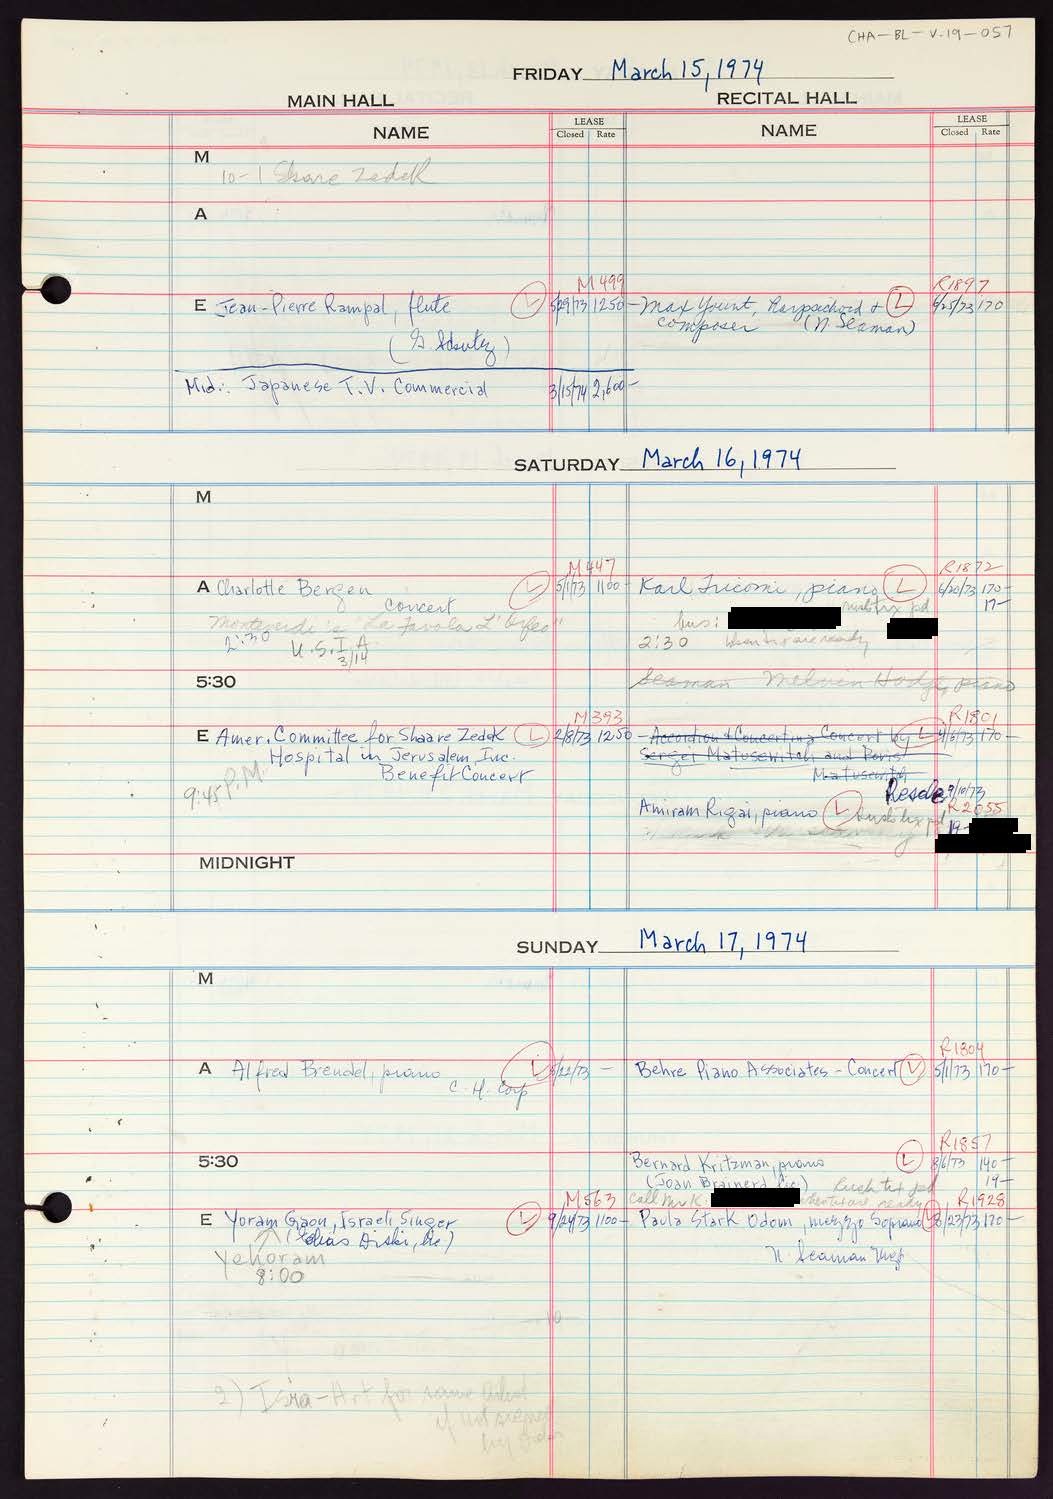 CHA-BL-V-19-057
FRIDAY March 15, 1974
MAIN HALL RECITAL HALL
NAME LEASE Closed Rate NAME LEASE Closed Rate
M
10-1 Shaare Zedek
A
M499 R1897
E Jean-Pierre Rampal, flute L 5/29/73 1250- Max Yount, Harpsichord + L 9/25/73 170
composer (N Seaman)
Mid.: Japanese T.V. Commercial 3/15/74 2,600-
SATURDAY March 16, 1974
M
M447 R1872
A Charlotte Bergen L 5/1/73 1100- Karl Tricomi, piano L 6/20/73 170-
concert 17-
Monteverdi's "La Favola d'Orfeo" bus:
2:30 U.S.I.A. 2:30 when tix are ready
3/14
5:30 Seaman Melvin piano
M393 R1801
E Amer. Committee for Shaare Zedek L 2/8/73 1250- Accordion & Concertina Concert by L 4/5/73 170-
Hospital in Jerusalem Inc. Sergei Matusewitch and Boris
Benefit Concert Matusewitch
9:45 P.M. Resale 9/10/73
Amiram Rigai, piano L R2055
19-
MIDNIGHT
SUNDAY March 17, 1974
M
R1804
A Alfred Brendel, piano L 5/22/73 - Behre Piano Associates - Concert L 5/1/73 170-
C. H. Corp
R1857
5:30 Bernard Kritzman, piano L 8/6/73 140-
(Joan Brainerd Inc.) 19-
M563 call Mr K. when tix are ready R1928
E Yoram Gaon, Israeli Singer L 9/24/73 1100- Paula Stark Odom, mezzo Soprano L 8/23/73 170-
Yehoram N. Seaman Mgr
8:00
2) Isra-Art for same
if not
by Odom